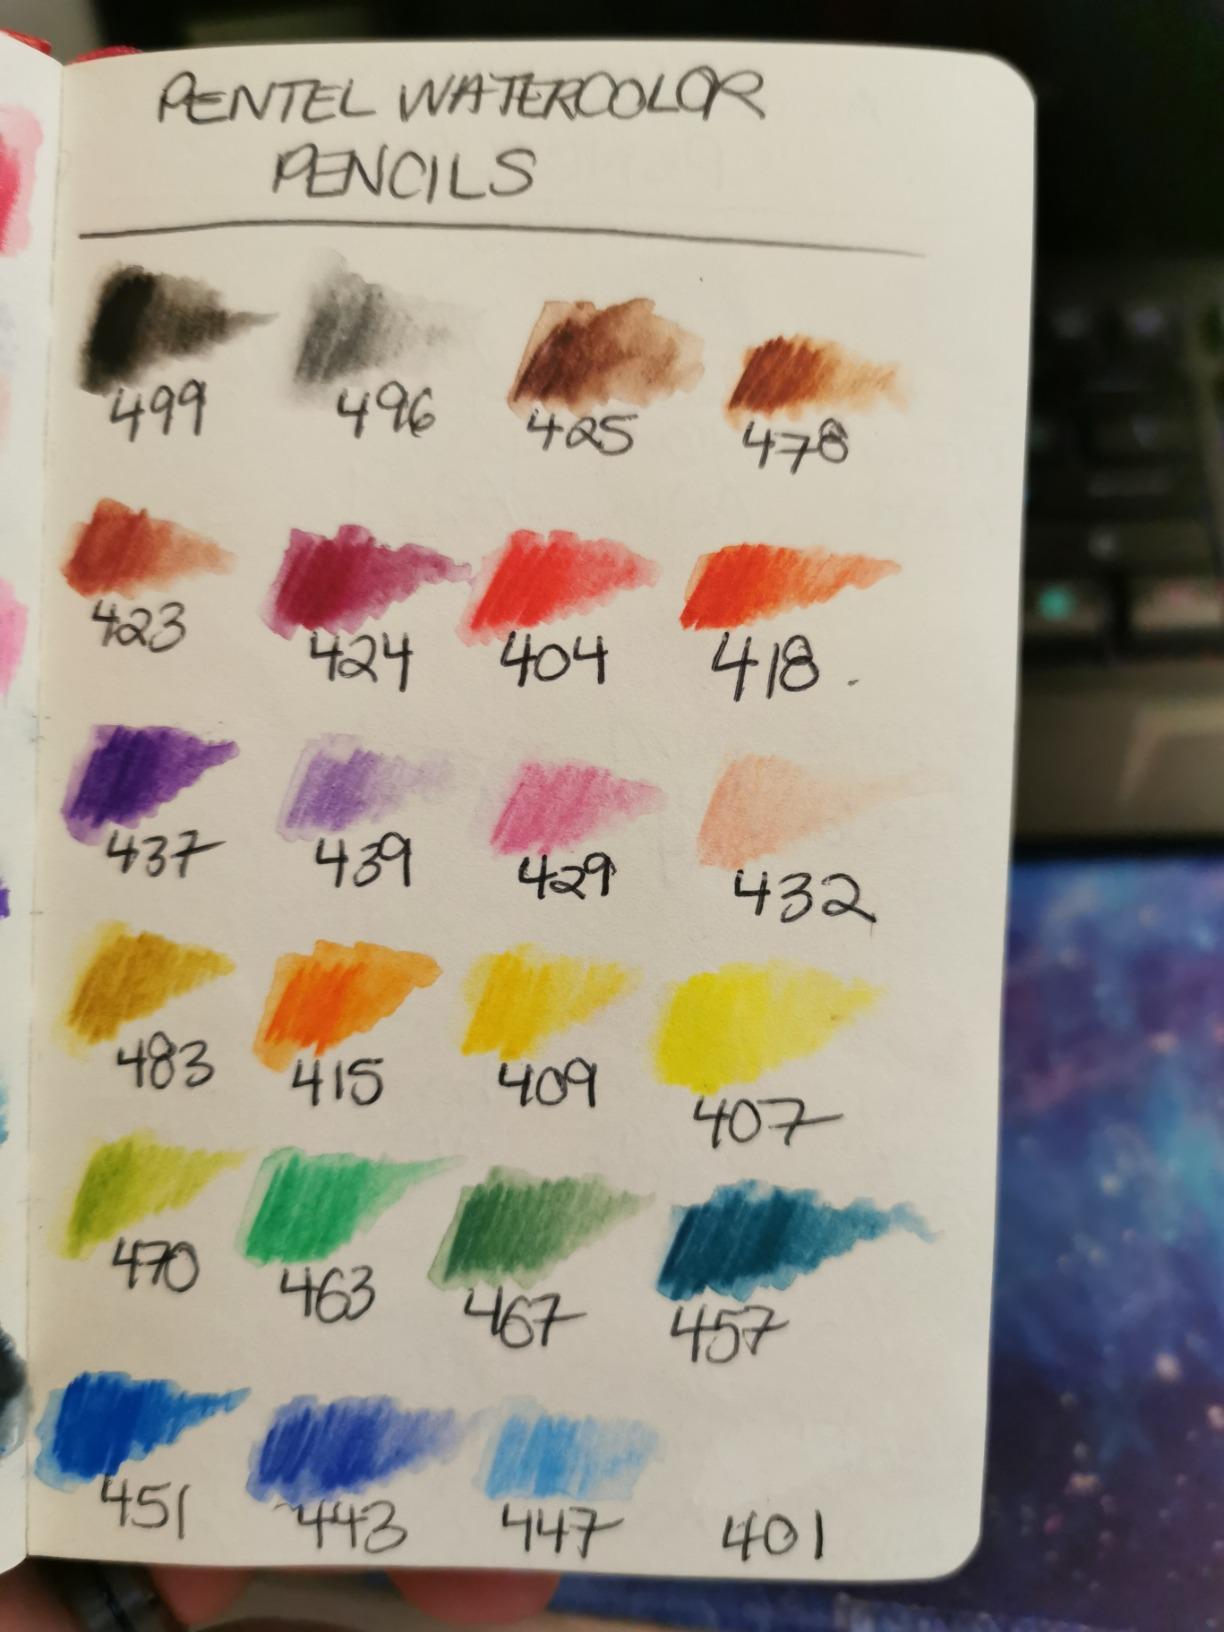 PENTEL WATERCOLOR
PENCILS
499 496 425 478
423 424 404 418
437 439 429 432
483 415 409 407
470 463 467 457
451 443 447 401